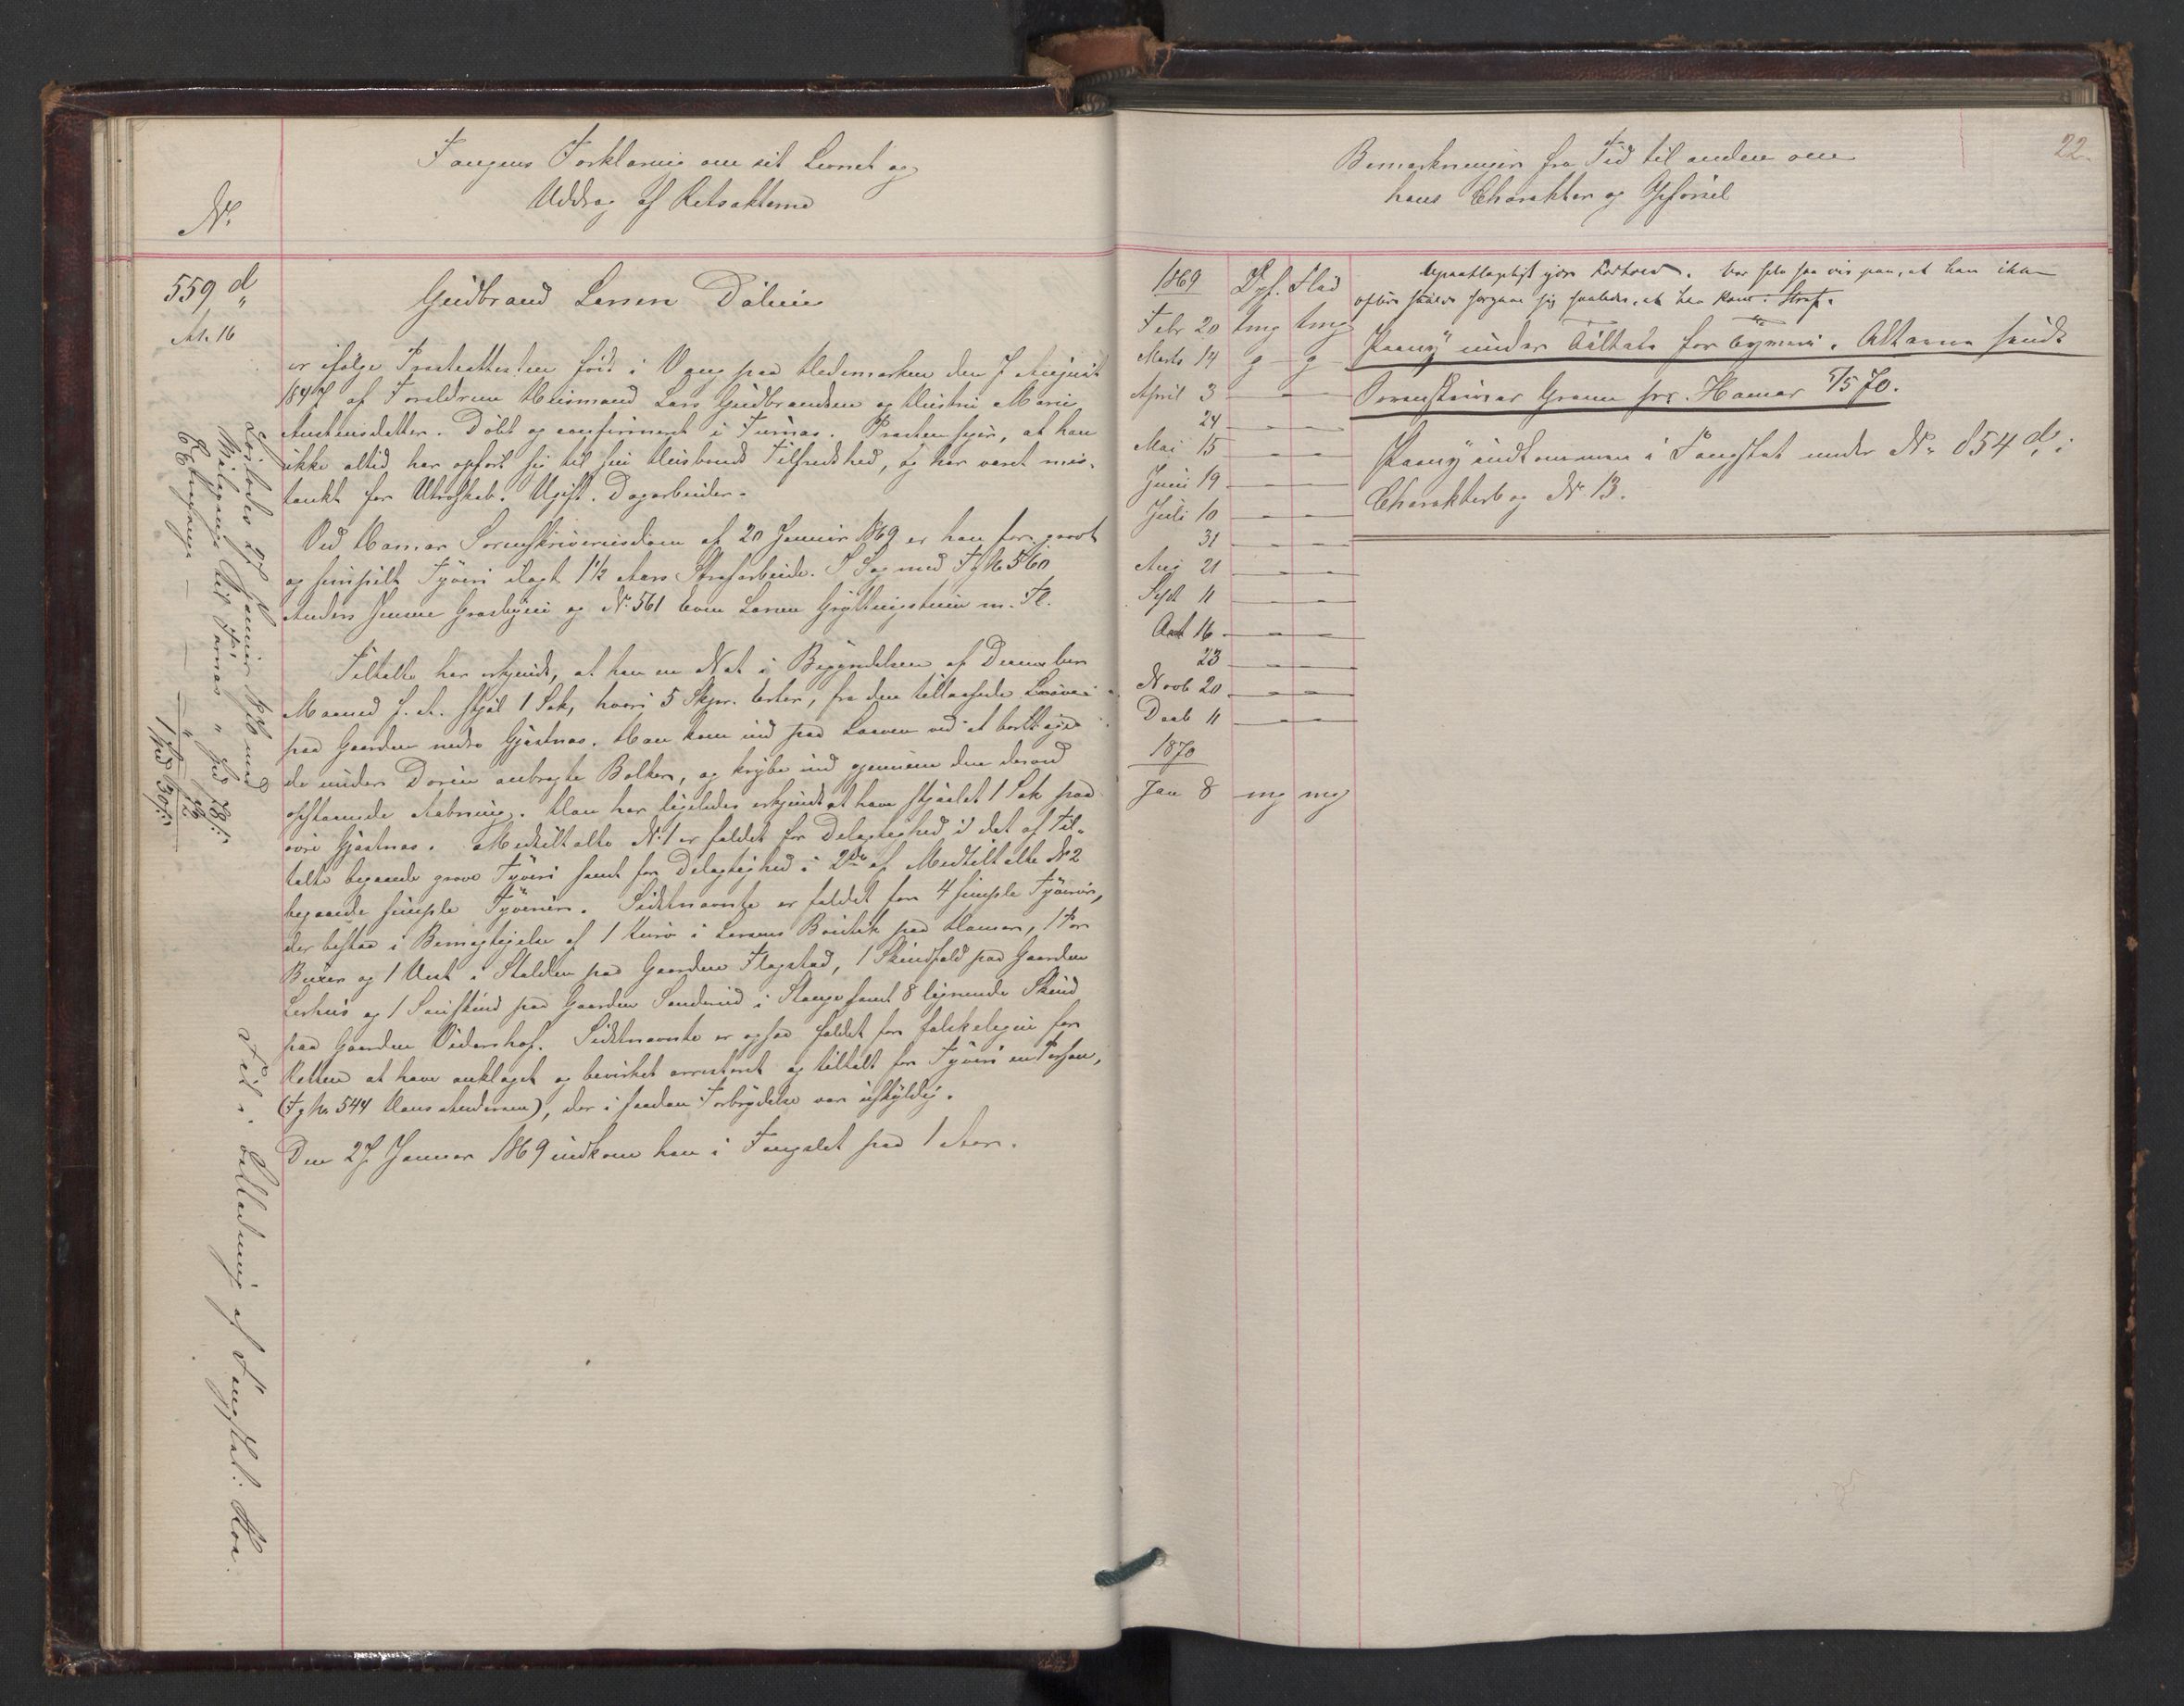 Fangens Forklaring om sit Levnet og
Uddrag af Retsakterne
No.
559 d
At. 16
Gudbrand Larsen Dølien
er ifølge Præsteattesten født i Vang paa Hedemarken den 7 August
1847 af Forældrene Huusmand Lars Gudbrandsen og Hustru Marie
Austensdatter. Døbt og confirmeret i Furnæs. Præsten siger, at han
ikke altid har opført sig til sin Huusbonds Tilfredshed, og har været mis-
tænkt for Utroskab. Ugift. Dagarbeider.
Ved Hamar Sorenskriveriesdom af 20 Januar 1869 er han for grovt
og simpelt Tyveri ilagt 1½ Aars Strafarbeide. I Sag med Fg No 560
Anders Jensen og No. 561 Even Larsen m. Fl.
Tiltalte har erkjendt, at han en Nat i Begyndelsen af December
Maaned f. A. stjal 1 Sæk, hvori 5 Skjpr. Erter, fra den tillaasede Laave
paa Gaarden nedre Gjæstnæs. Han kom ind paa Laaven ved at borttage
de under Døren anbragte Bolker, og krybe ind gjennem den derved
opstaaede Aabning. Han har ligeledes erkjendt at have stjaalet 1 Sæk paa
øvre Gjæstnæs. Medtiltalte No. 1 er fældet for Delagtighed i det af Til-
talte begaaede grove Tyveri samt for Delagtighed i 2de af Medtiltalte No 2
begaaede simple Tyverier. Sidstnævnte er fældet for 4 simple Tyverier,
der bestaa i Bemægtigelse af 1 i Larsens Boutik paa Hamar, 1 Par
Buxer og 1 Vest i Stalden paa Gaarden Flagstad, 1 Skindfeld paa Gaarden
Lerhus og 1 Saueskind paa Gaarden Sanderud i Stange samt 8 lignende Skind
paa Gaarden Vidarshof. Sidstnævnte er ogsaa fældet for falskeligen for
Retten at have anklaget og bevirket arresteret og tiltalt for Tyveri en Person,
(Fg No 544 Hans Andersen), der i saadan Forbrydelse var uskyldig.
Den 27 Januar 1869 indkom han i Fangslet paa 1 Aar.
Løslodes 27 Januar 1870 med
til Furnæs " Spd 78 s:
Extrapenge
1 Spd 30 s:
Bemærkninger fra Tid til anden om
hans Charakter og Opførsel
22.
1869 Opf. Flid
Febr 20 tmg tmg
Marts 14 g g
April 3 – –
24 – –
Mai 15 – –
Juni 19 – –
Juli 10 – –
31 – –
Aug 21 – –
Sept 11 – –
Oct 16 – –
23 – –
Novb 20 – –
Decb 11 – –
1870
Jan 8 mg mg
Paany under Tiltale for Tyveri. Akterne sendt
Sorenskriver Gram pr. Hamar 5/5 70.
Paany indkommen i Fangslet under No. 854 d, i
Charakterbog No. 13.